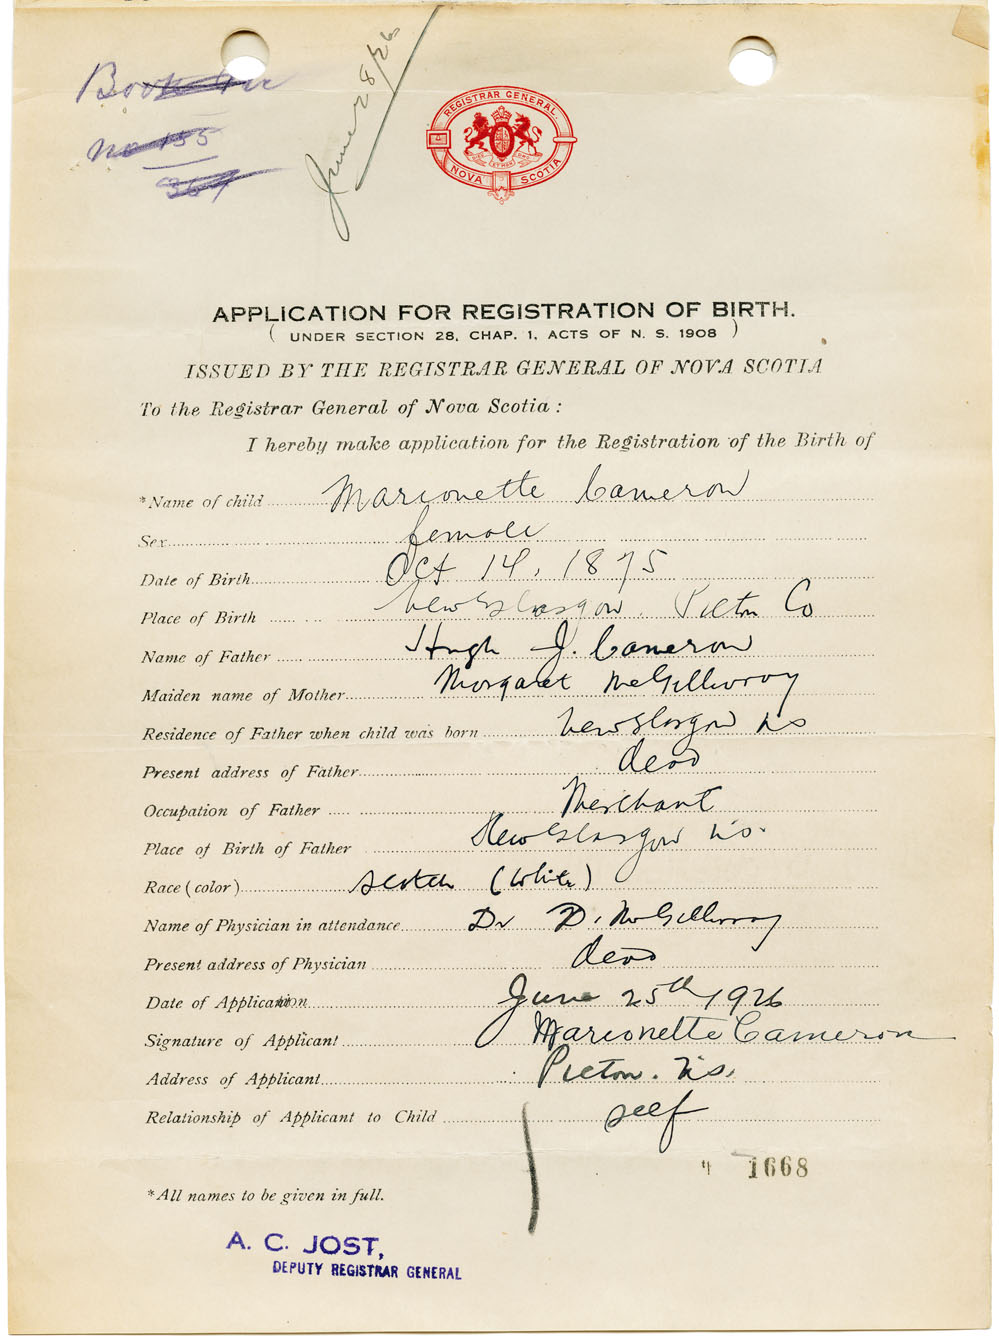 Book
No 155
367
June 28/26
REGISTRAR GENERAL
NOVA SCOTIA
APPLICATION FOR REGISTRATION OF BIRTH.
( UNDER SECTION 28, CHAP. 1, ACTS OF N. S. 1908 )
ISSUED BY THE REGISTRAR GENERAL OF NOVA SCOTIA
To the Registrar General of Nova Scotia :
I hereby make application for the Registration of the Birth of
*Name of child Marionette Cameron
Sex female
Date of Birth Oct 14, 1875
Place of Birth New Glasgow. Pictou Co
Name of Father Hugh J. Cameron
Maiden name of Mother Margaret McGillivray
Residence of Father when child was born New Glasgow NS
Present address of Father dead
Occupation of Father Merchant
Place of Birth of Father New Glasgow N.S.
Race (color) Scotch (White)
Name of Physician in attendance Dr D. McGillivray
Present address of Physician dead
Date of Application June 25th 1926
Signature of Applicant Marionette Cameron
Address of Applicant Pictou. N.S.
Relationship of Applicant to Child self
1668
*All names to be given in full.
A. C. JOST,
DEPUTY REGISTRAR GENERAL